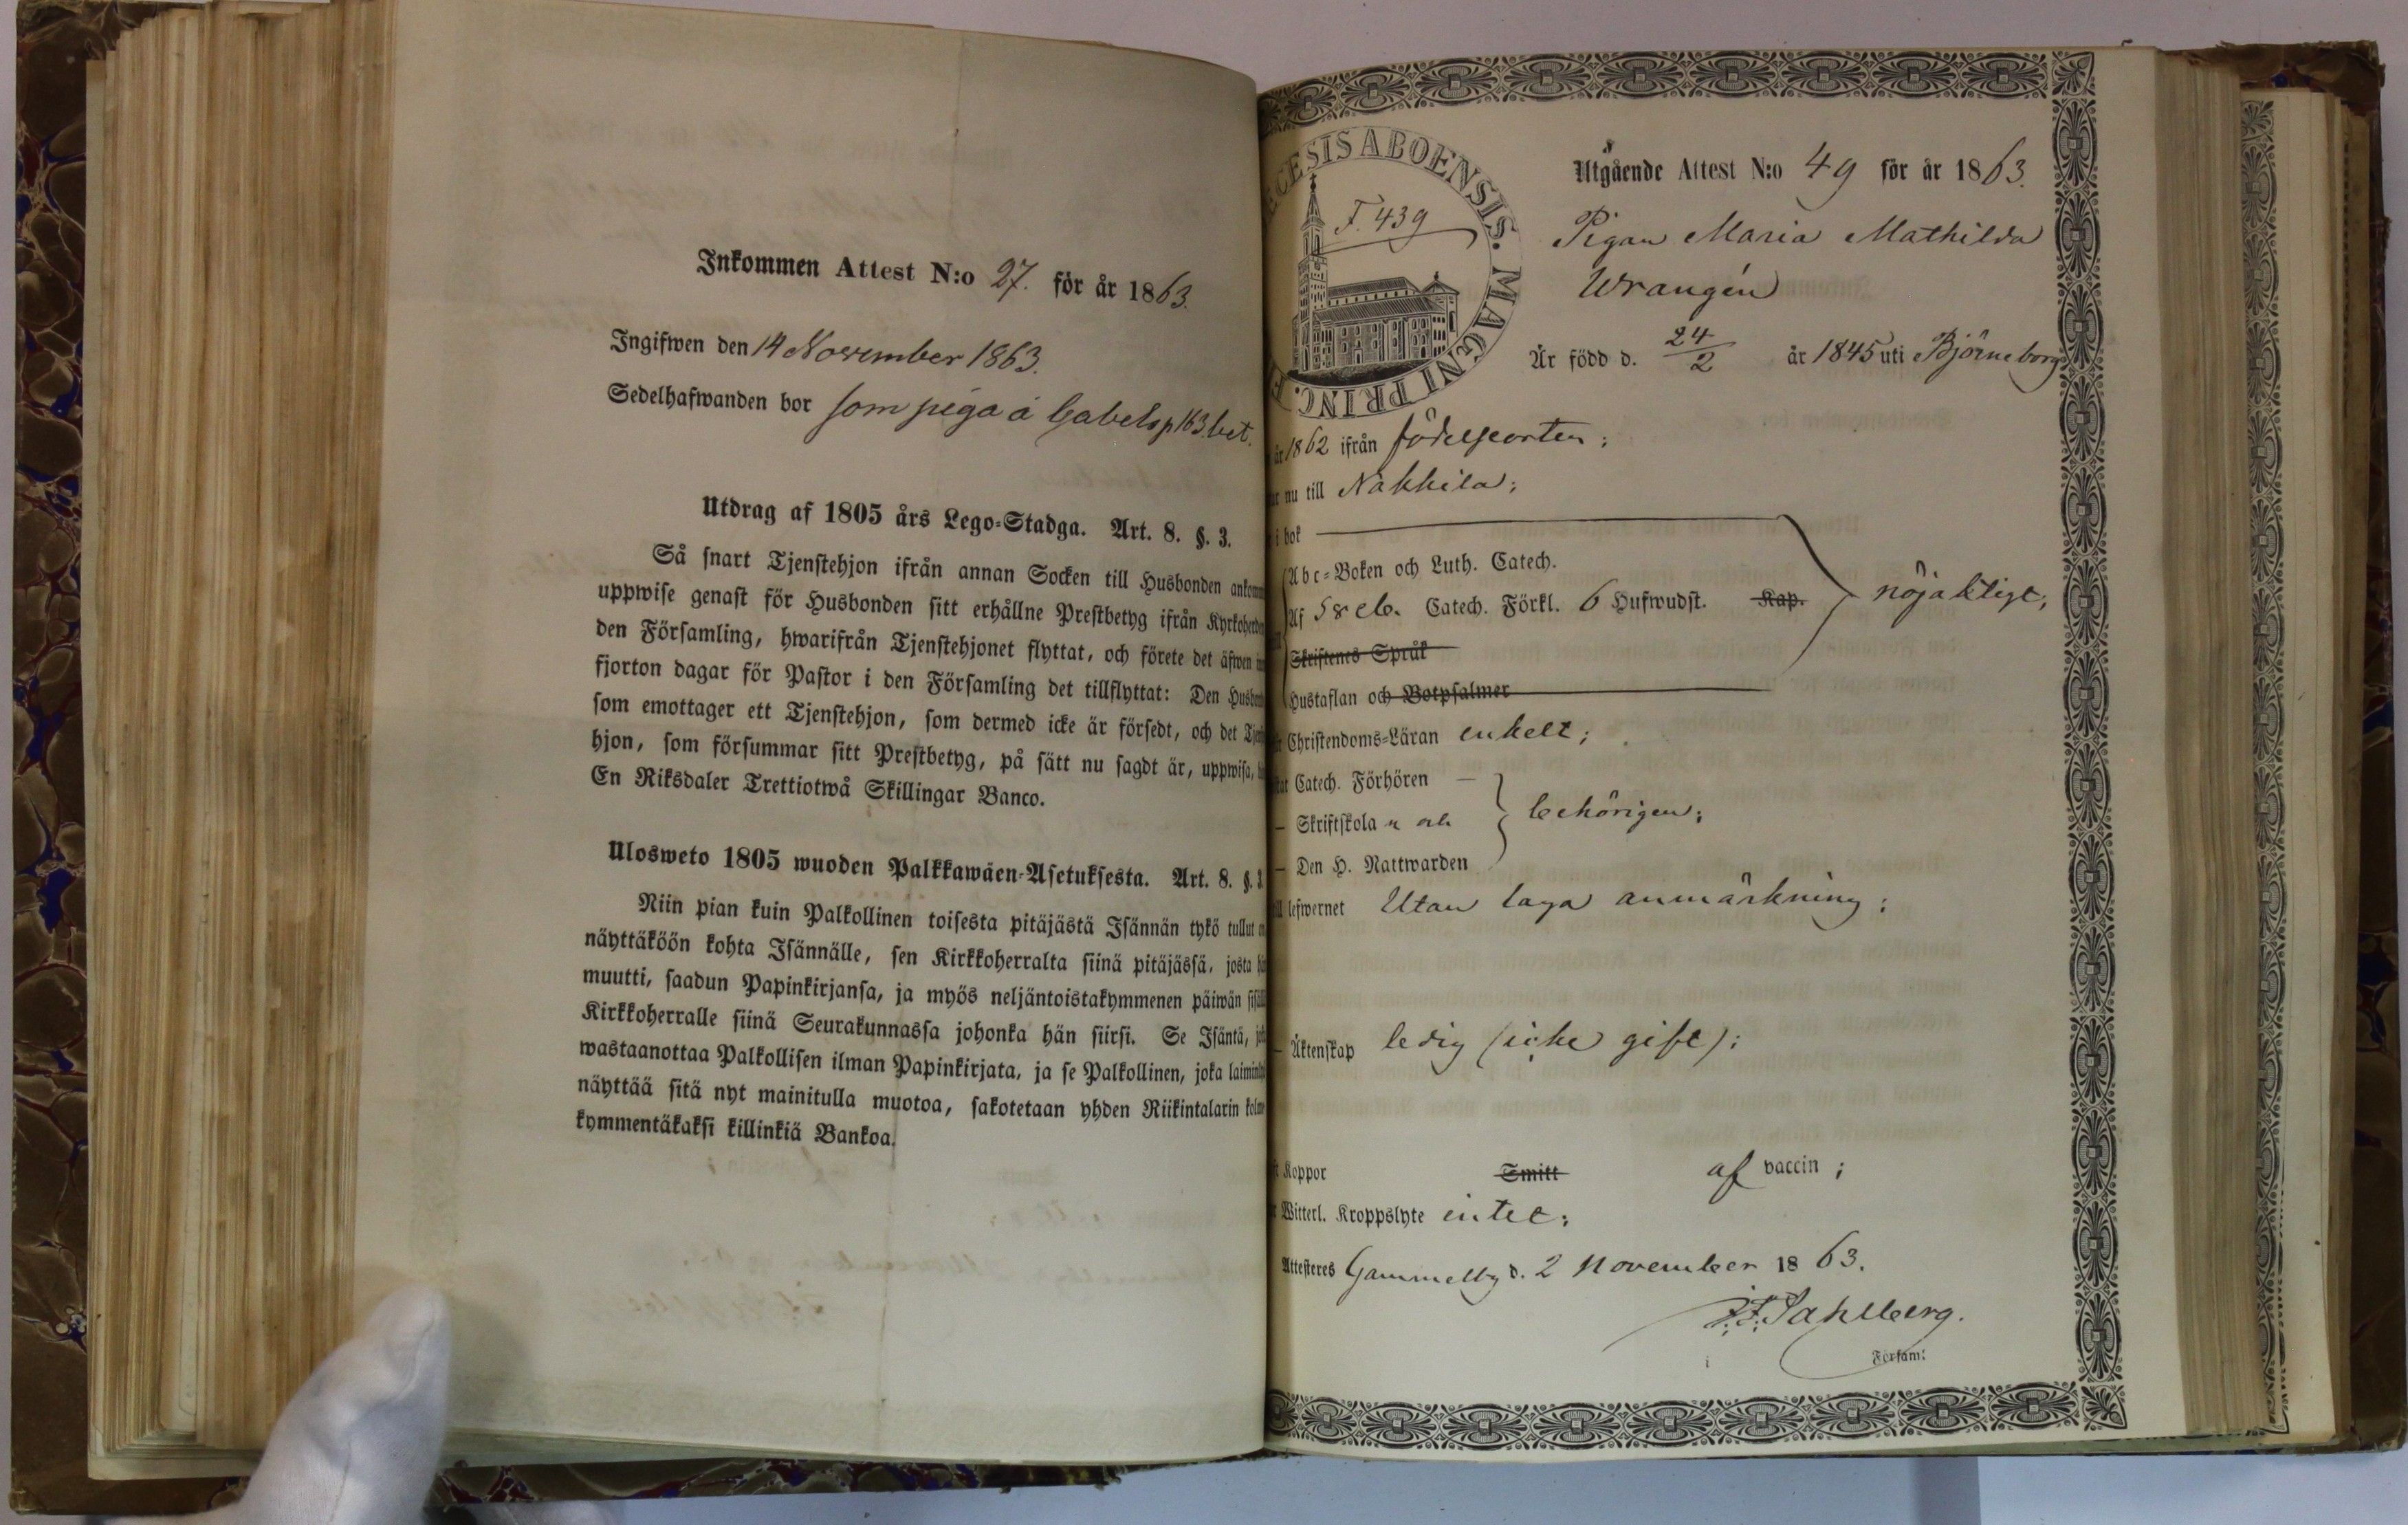 Inkommen Attest N:o 27. för år 1863.
Ingifwen den 14 November 1863.
Sedelhafwanden bor som piga å Gabels p 163. bet.
Utdrag af 1805 års Lego-Stadga. Art. 8. §. 3.
Så snart Tjenstehjon ifrån annan Socken till Husbonden
uppwise genast för Husbonden sitt erhållne Prestbetyg ifrån
den Församling, hwarifrån Tjenstehjonet flyttat, och förete det äfwen
fjorton dagar för Pastor i den Församling det tillflyttat: Den
som emottager ett Tjenstehjon, som dermed icke är försedt, och det
hjon, som försummar sitt Prestbetyg, på sätt nu sagdt är, uppwisa,
En Riksdaler Trettiotwå Skillingar Banco.
Ulosweto 1805 wuoden Palkkawäen-Asetuksesta. Art. 8. §. 3.
Niin pian kuin Palkollinen toisesta pitäjästä Isännän tykö tullut
näyttäköön kohta Isännälle, sen Kirkkoherralta siinä pitäjässä, josta
muutti, saadun Papinkirjansa, ja myös neljäntoistakymmenen päiwän
Kirkkoherralle siinä Seurakunnassa johonka hän siirsi. Se Isäntä,
wastaanottaa Palkollisen ilman Papinkirjata, ja se Palkollinen, joka
näyttää sitä nyt mainitulla muotoa, sakotetaan yhden Riikintalarin
kymmentäkaksi killinkiä Bankoa.
ECESIS ABOENSIS. MAGNI PRINC. F
F. 439
Utgående Attest N:o 49 för år 1863.
Pigan Maria Mathilda
Wrangén
Är född d. 24/2 år 1845 uti Björneborg
år 1862 ifrån födelseorten;
nu till Nakkila;
i bok
Abc-Boken och Luth. Catech.
Af Sveb. Catech. Förkl. 6 Hufwudst. Kap. nöjaktigt;
Skriftenes Språk
Hustaflan och Botpsalmer
Christendoms-Läran enkelt;
Catech. Förhören
— Skriftskolan och behörigen;
— Den H. Nattwarden
lefwernet Utan laga anmärkning;
— Äktenskap ledig (icke gift);
Koppor Smitt af vaccin;
Witterl. Kroppslyte intet;
Attesteres Gammelby d. 2 November 1863.
J. F. Sahlberg.
Försam: